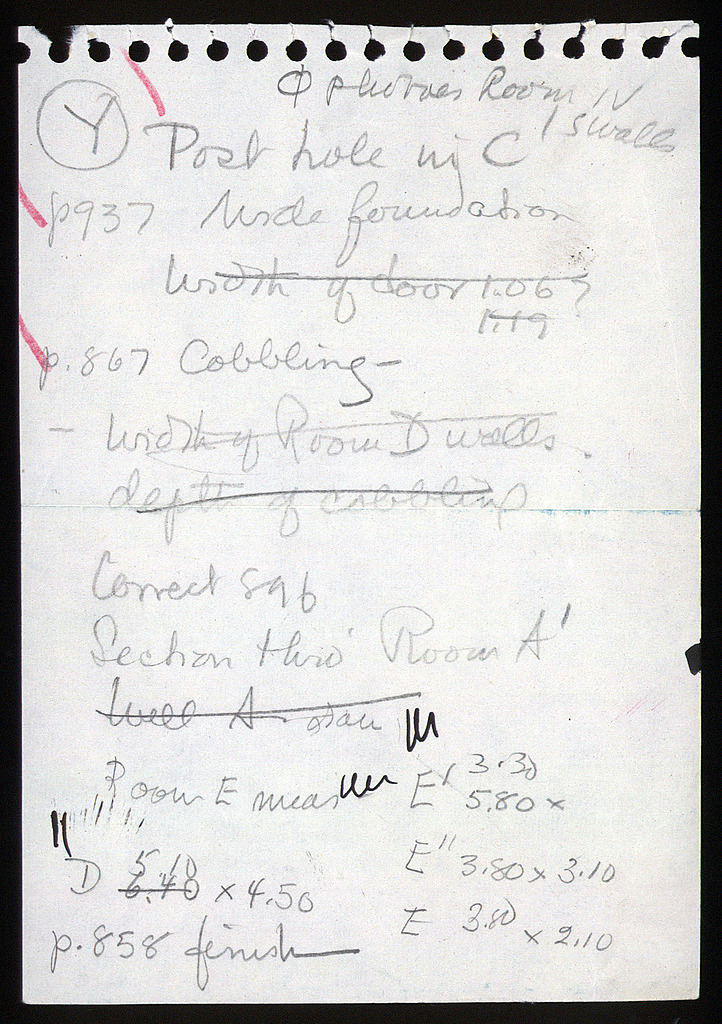 Φ photoes Room IV
Y
/ S walls
Post hole in C
p937 Wide foundation
Width of door 1.06?
1.19
p.867 Cobbling -
- Width of Room D walls.
depth of cobbling
Correct 896
Section thro' Room A'
Well A plan
Room E meas
E' 3.30
5.80 x
E" 3.80 x 3.10
D 5.10
6.40 x 4.50
E 3.80 x 2.10
p.858 finish